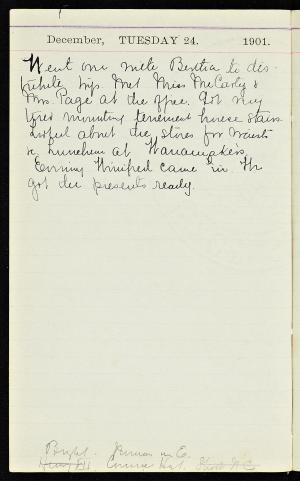 December, TUESDAY 24. 1901.
Went out with Bertha to dis-
tribute toys. Met Miss McCarty &
Mrs. Page at the office. Got very
tired mounting tenement house stairs
looked about the stores for waists
& Luncheon at Wanamaker's
Evening Winifred came in. We
got the presents ready.
Bright.